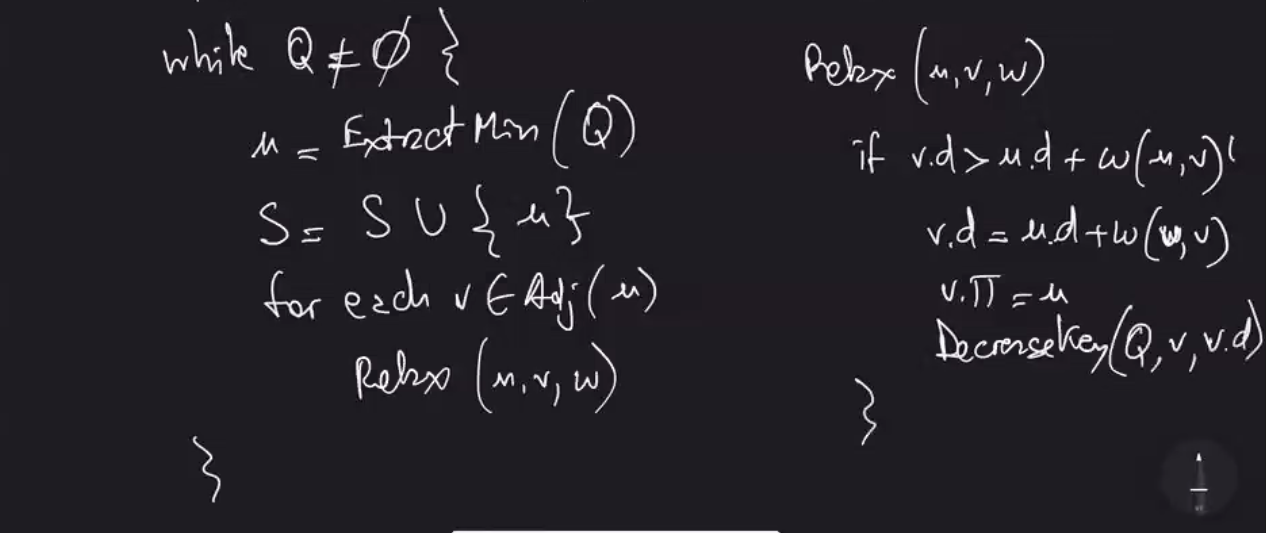 while Q ≠ ∅ {
u = ExtractMin(Q)
S = S ∪ {u}
for each v ∈ Adj(u)
Relax (u, v, w)
}
Relax (u, v, w)
if v.d > u.d + w(u, v) {
v.d = u.d + w(u, v)
v.π = u
DecreaseKey(Q, v, v.d)
}